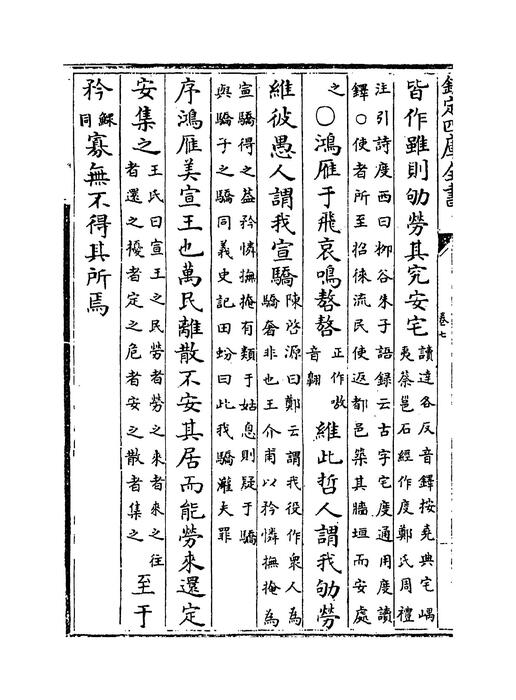 欽定四庫全書 卷七
皆作雖則劬勞其究安宅
讀達各反音鐸按堯典宅嵎
夷蔡邕石經作度鄭氏周禮
注引詩度西曰栁谷朱子語録云古字宅度通用度讀
鐸○使者所至招徠流民使返都邑築其牆垣而安處
之○鴻雁于飛哀鳴嗸嗸
正作嗷
音翺
維此哲人謂我劬勞
維彼愚人謂我宣驕
陳啓源曰鄭云謂我役作衆人為
驕奢非也王介甫以矜憐撫掩為
宣驕得之葢矜憐撫掩有類于姑息則疑于驕
與驕子之驕同義史記田蚡曰此我驕灌夫罪
序鴻雁美宣王也萬民離散不安其居而能勞來還定
安集之
王氏曰宣王之民勞者勞之來者來之往
者還之擾者定之危者安之散者集之
至于
矜
鰥
同
寡無不得其所焉